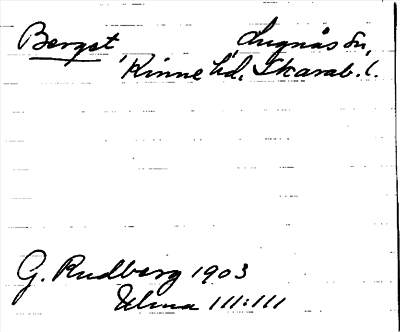 Berget, Lugnås sn,
Kinne hd, Skarab. l.
G. Rudberg 1903
Ulma 111:111